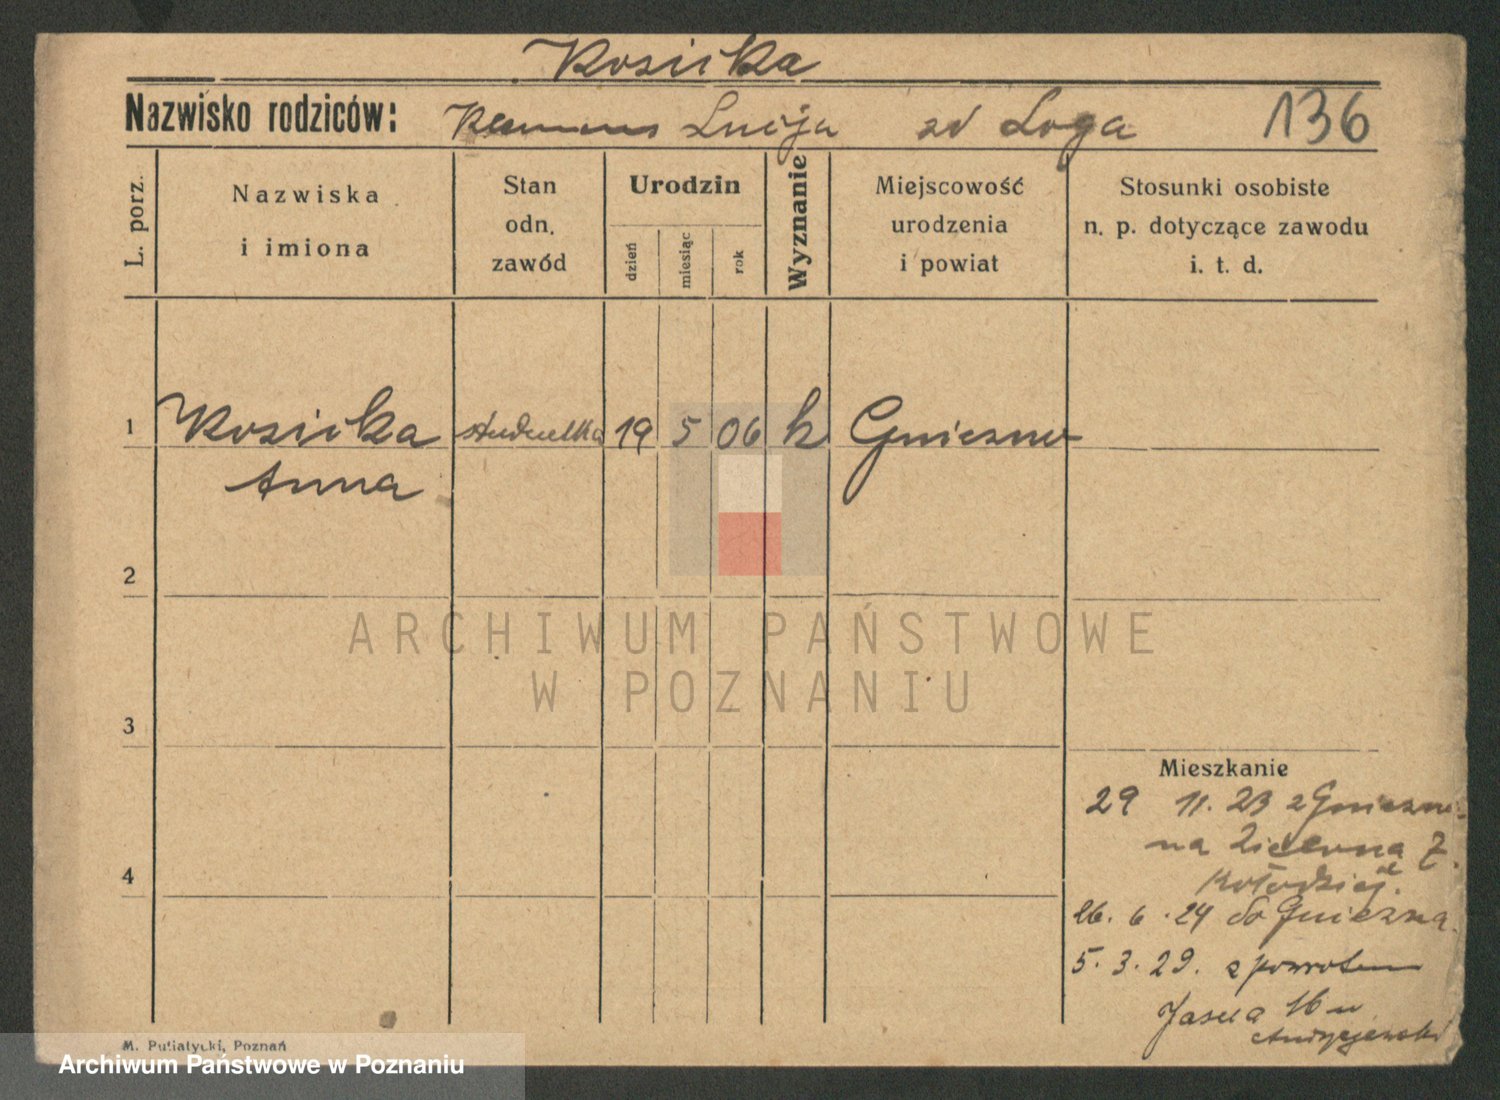 Kosicka
Nazwisko rodziców: Klemens Lucija zd Loga 136
L. porz.
Nazwiska
i imiona
Stan
odn.
zawód
Urodzin
dzień
miesiąc
rok
Wyznanie
Miejscowość
urodzenia
i powiat
Stosunki osobiste
n. p. dotyczące zawodu
i. t. d.
1 Kosicka studentka 19 5 06 k Gniezno
Anna
2
ARCHIWUM PAŃSTWOWE
W POZNANIU
3
Mieszkanie
29 11. 23 z Gniezna
na 7.
Kołodziej.
4
26. 6. 24 do Gniezna.
5. 3. 29. z powrotem
Jasna 16 u
Andrzejewski
M. Putiatycki, Poznań
Archiwum Państwowe w Poznaniu